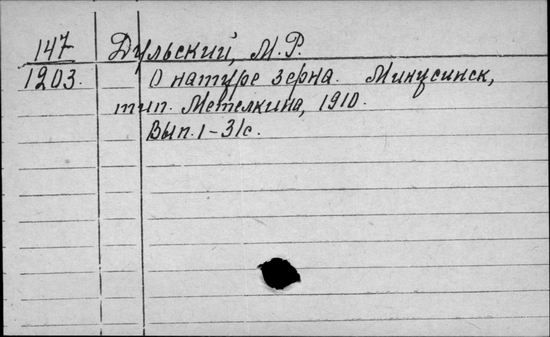 147 Дульский, М.Р.
1203. О натуре зерна. Минусинск,
тип. Метелкина, 1910.
Вып. 1-31с.